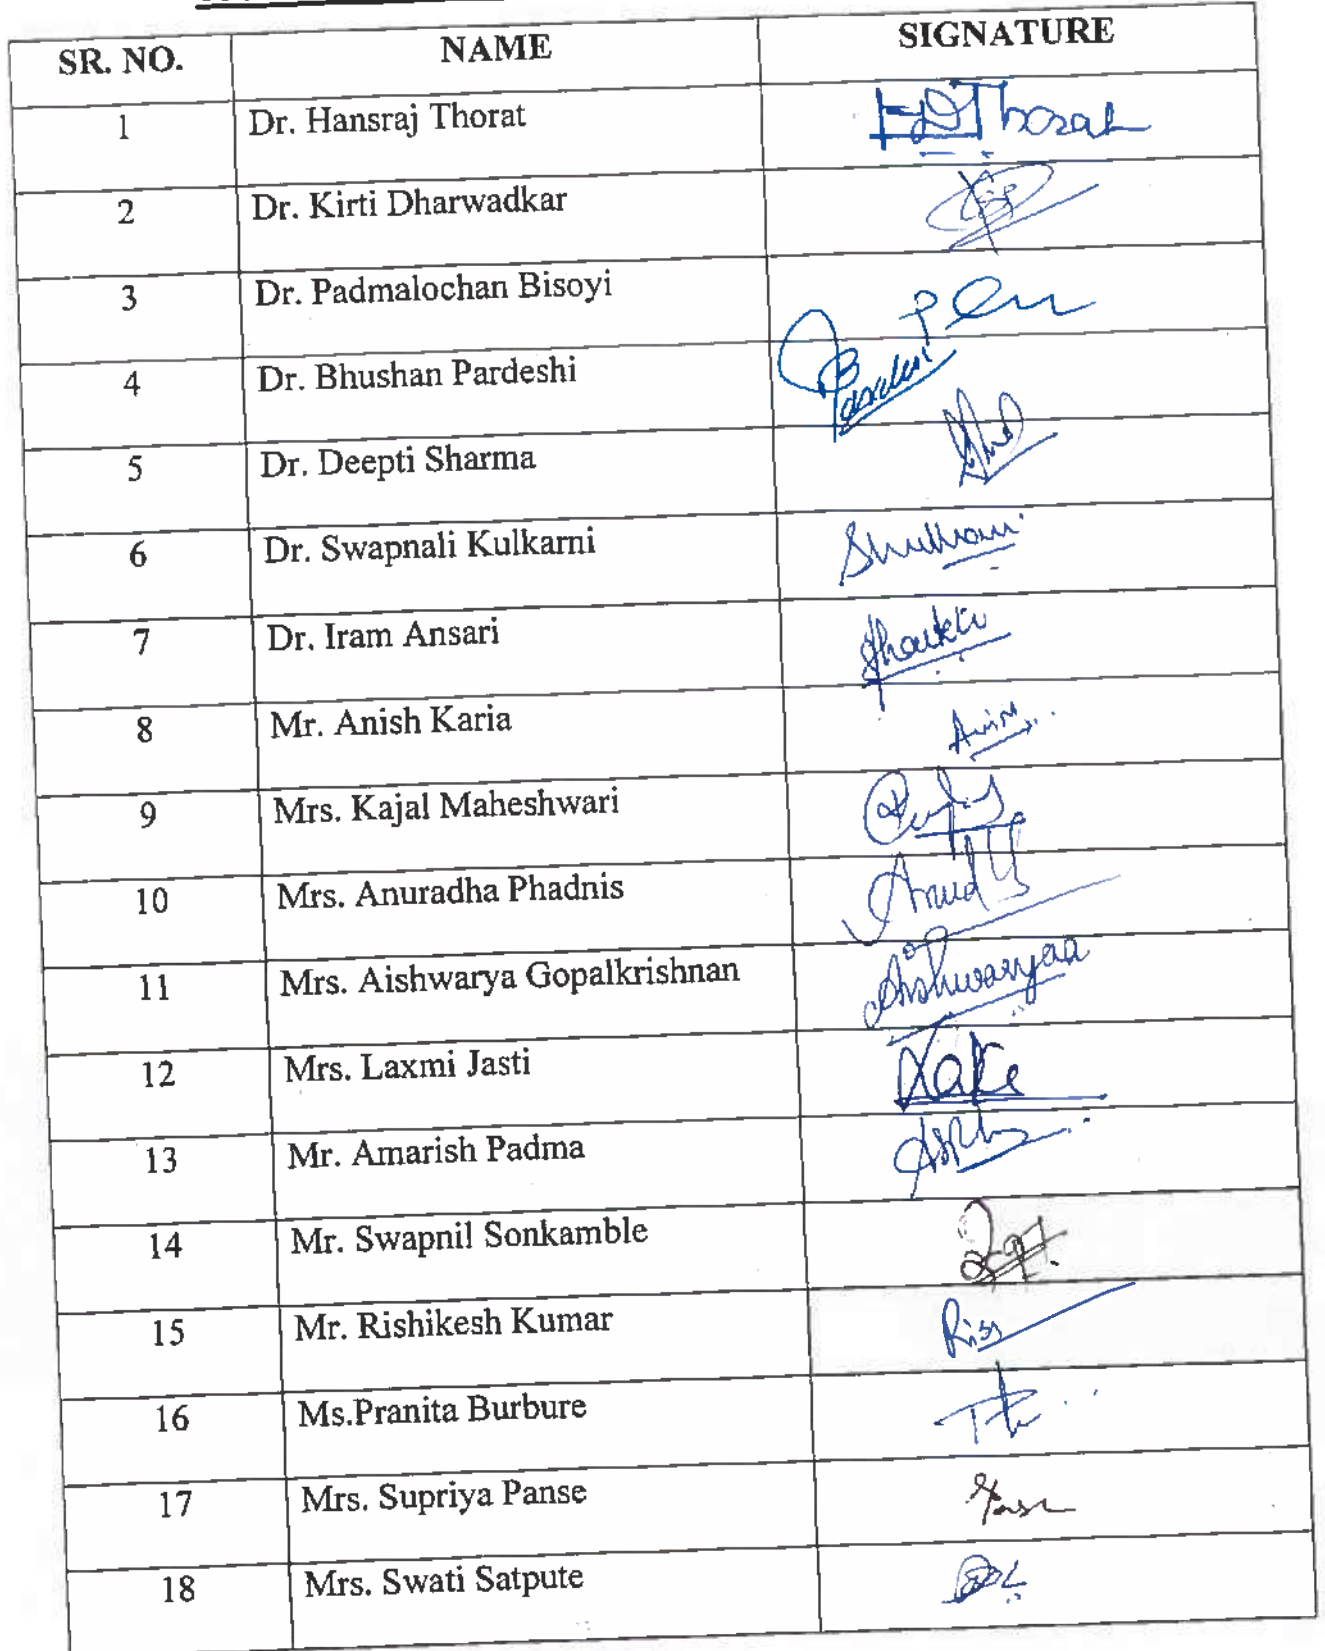 SR. NO. NAME SIGNATURE
1 Dr. Hansraj Thorat HDThorat
2 Dr. Kirti Dharwadkar
3 Dr. Padmalochan Bisoyi
4 Dr. Bhushan Pardeshi Pardeshi
5 Dr. Deepti Sharma
6 Dr. Swapnali Kulkarni
7 Dr. Iram Ansari
8 Mr. Anish Karia
9 Mrs. Kajal Maheshwari
10 Mrs. Anuradha Phadnis
11 Mrs. Aishwarya Gopalkrishnan Aishwaryaa
12 Mrs. Laxmi Jasti
13 Mr. Amarish Padma
14 Mr. Swapnil Sonkamble
15 Mr. Rishikesh Kumar
16 Ms.Pranita Burbure
17 Mrs. Supriya Panse
18 Mrs. Swati Satpute